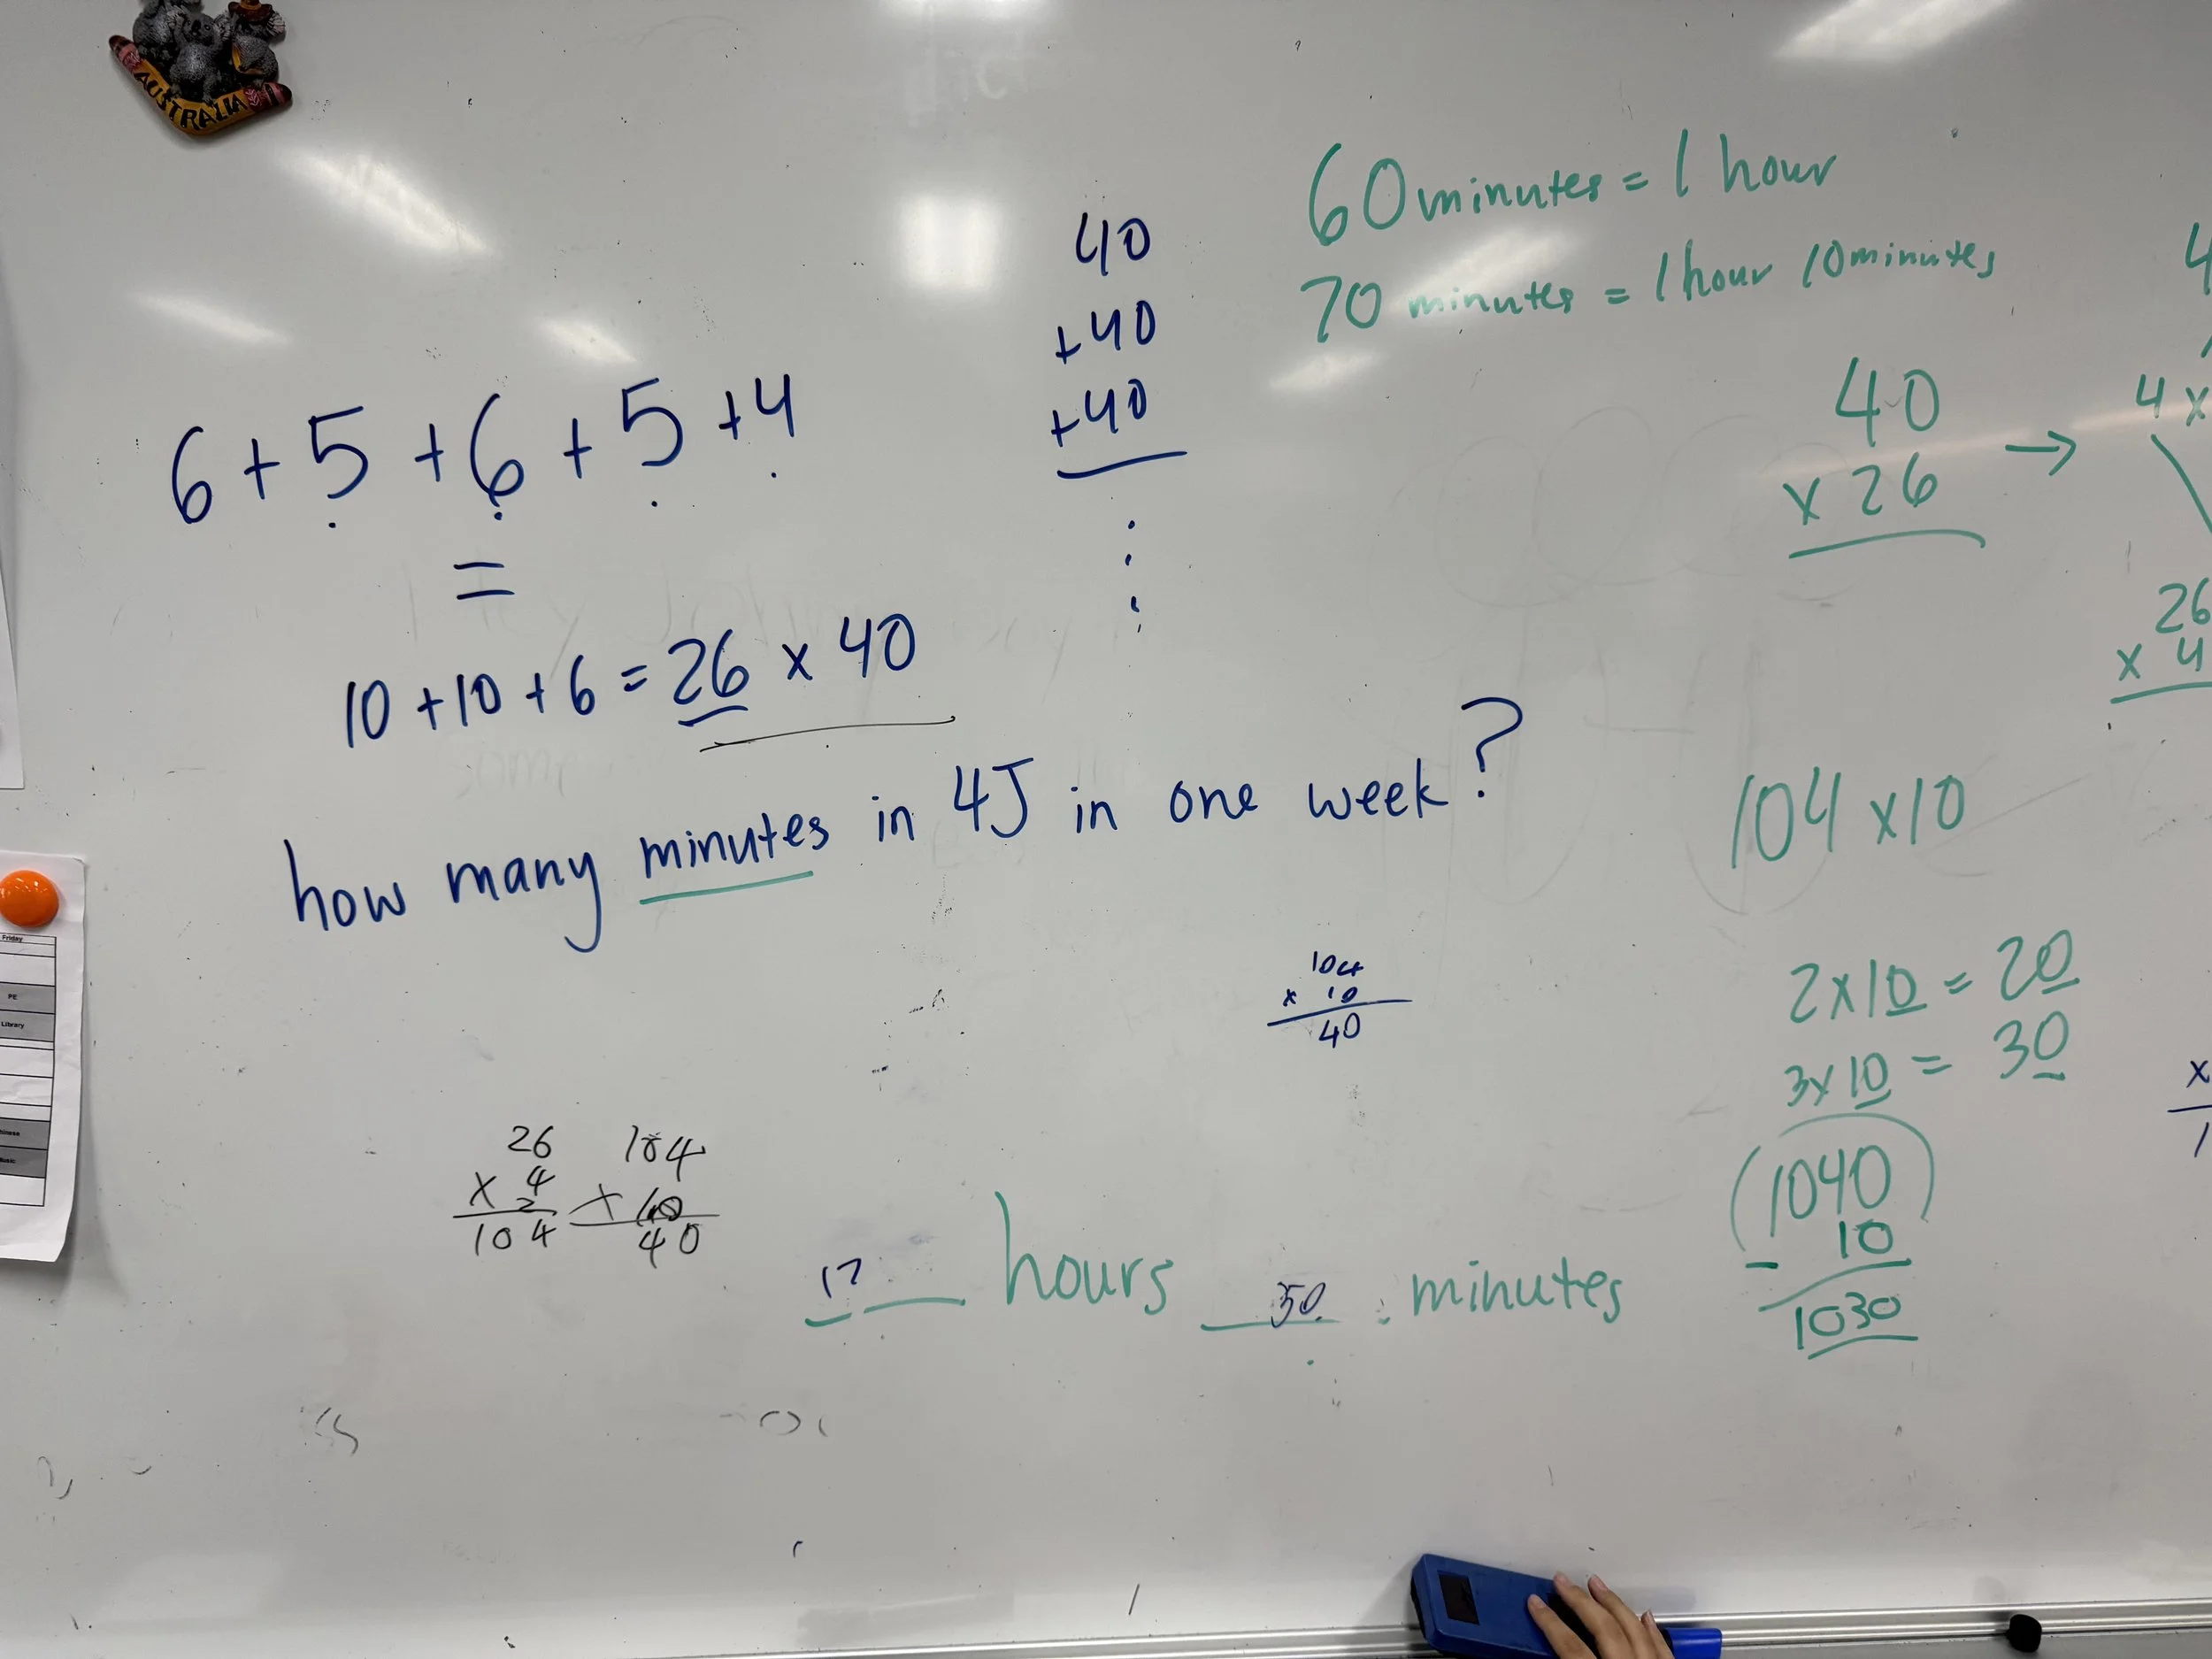 AUSTRALIA
6 + 5 + 6 + 5 + 4
=
10 + 10 + 6 = 26 x 40
40
+40
+40
60 minutes = 1 hour
70 minutes = 1 hour 10 minutes
40
x 26
→
4 x
26
x 4
how many minutes in 4J in one week?
104 x 10
2 x 10 = 20
3 x 10 = 30
1040
- 10
1030
104
x 10
40
26
x 4
2
104
104
x 10
40
17 hours 50 minutes
Friday
PE
Library